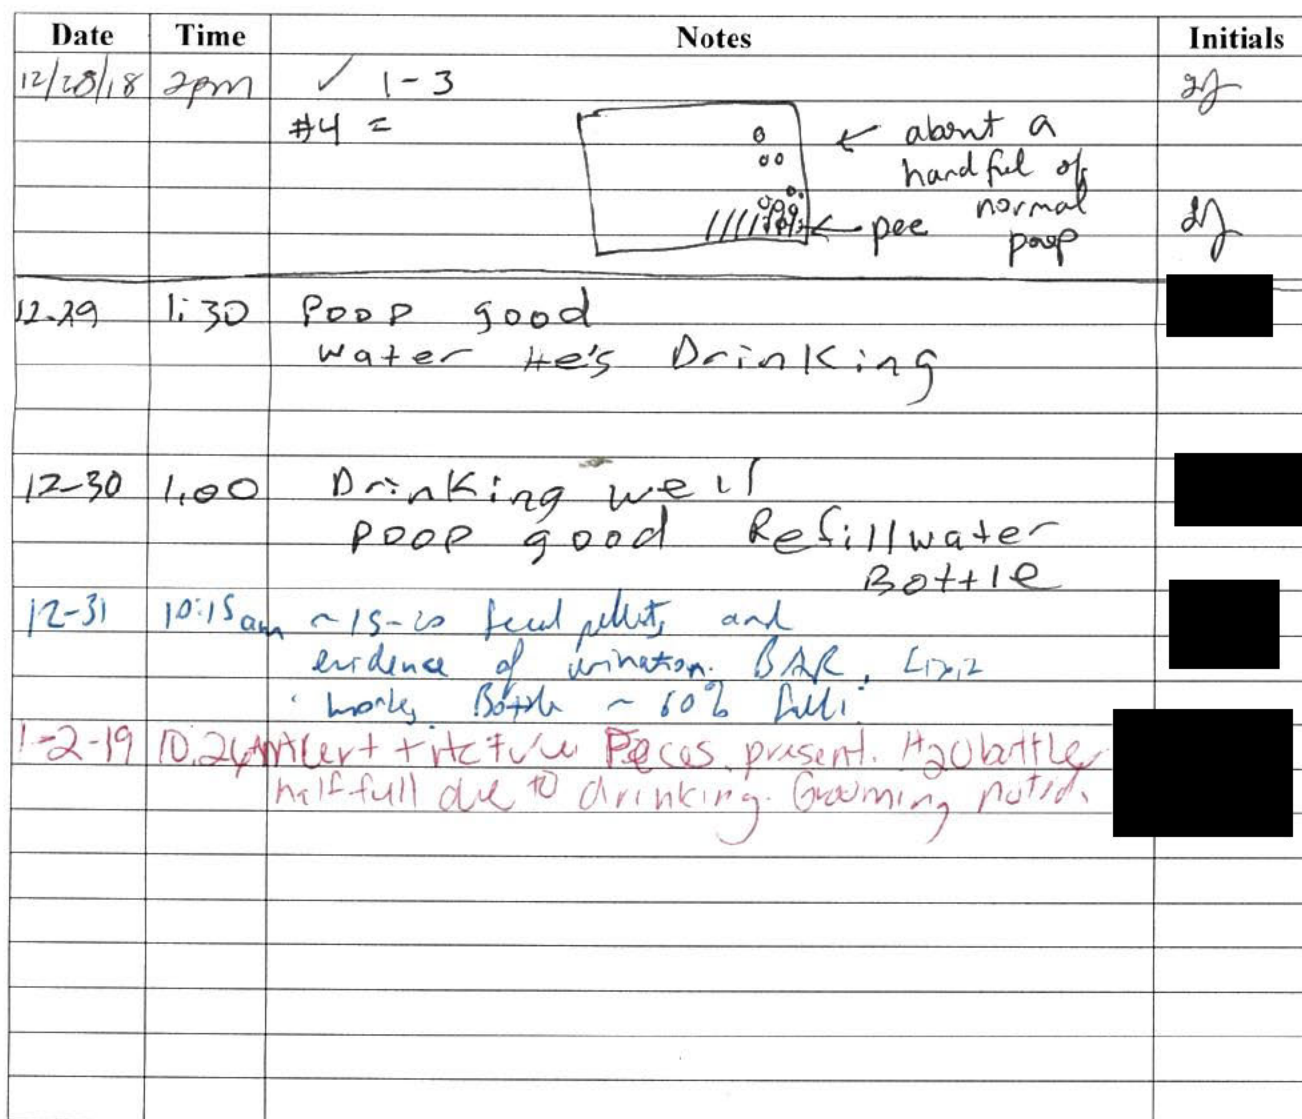 Date Time Notes Initials
12/28/18 2pm ✓ 1-3
#4 =
← about a
handful of
normal
poop
← pee
12-29 1:30 Poop good
water He's Drinking
12-30 1:00 Drinking well
Poop good Refill water
Bottle
12-31 10:15am ~15-20 fecal pellets and
evidence of urination. BAR,
works Bottle ~ 60% full.
1-2-19 10:24AM Alert + Active Feces present. H2O bottle
half full due to drinking. Grooming noted.